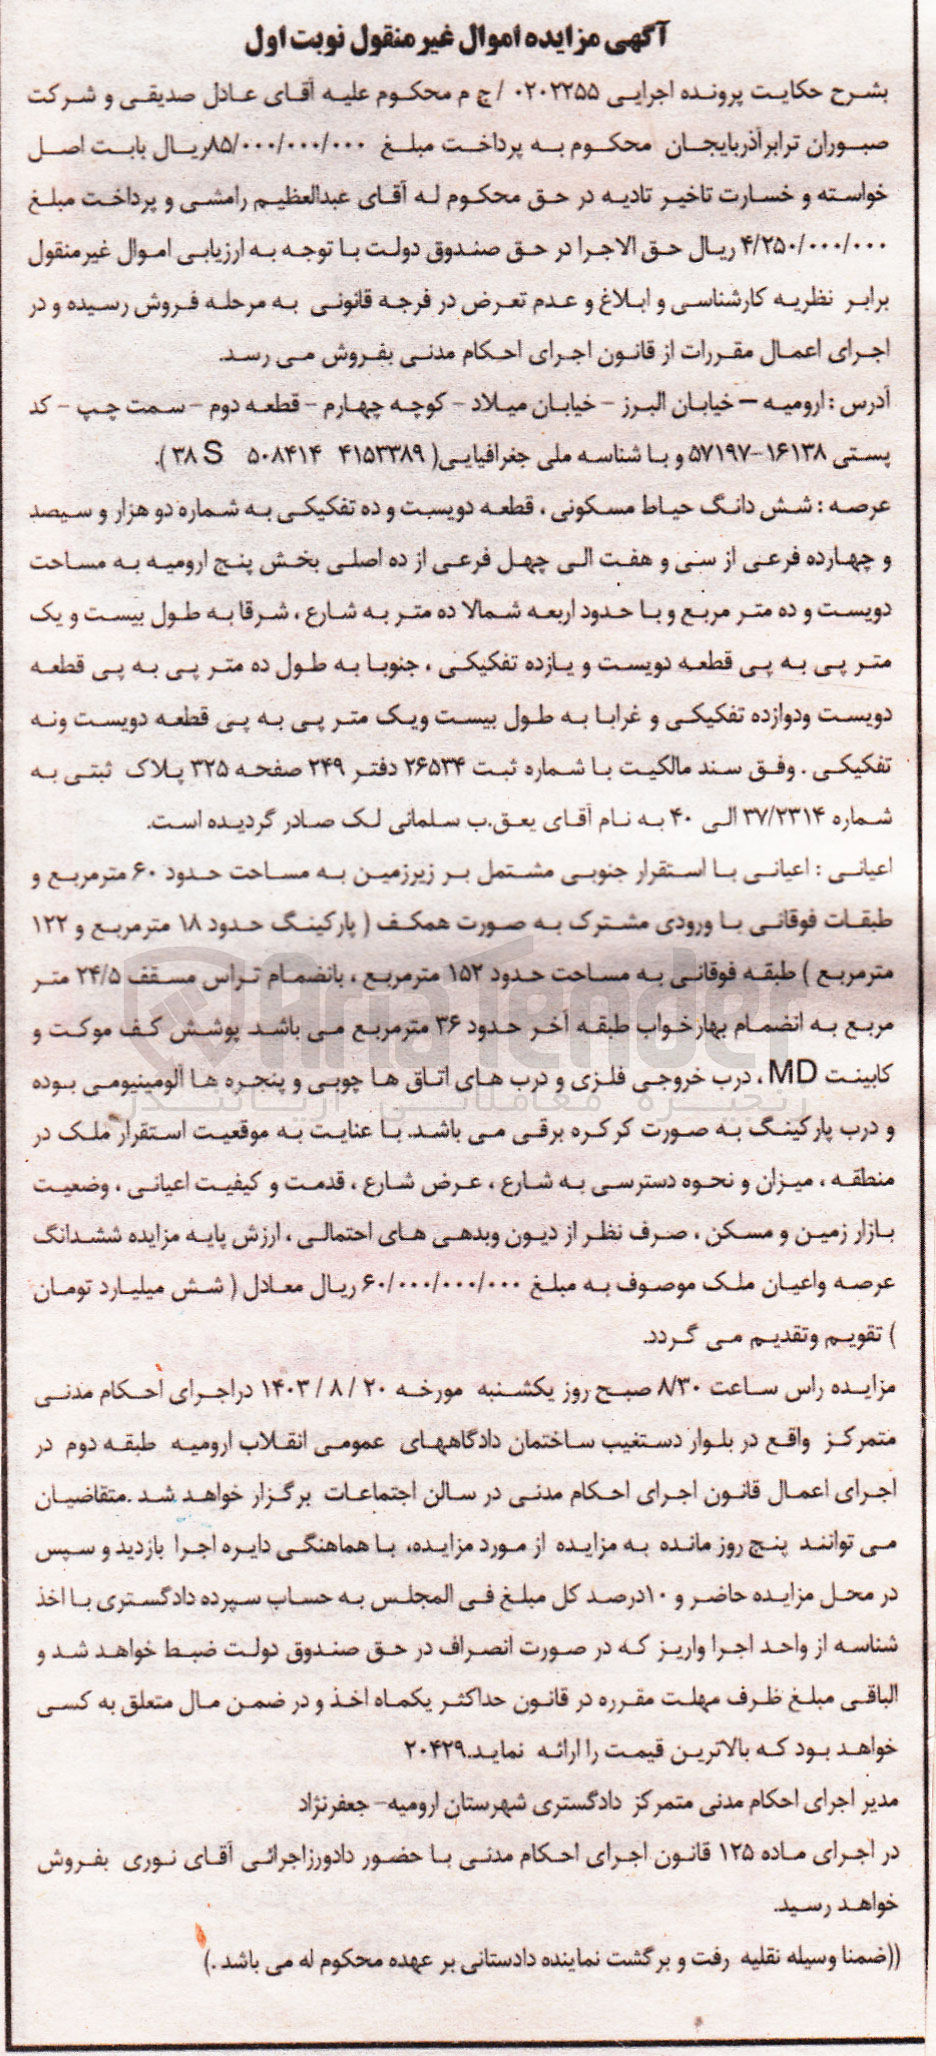 آگهی مزایده اموال غیر منقول نوبت اول
بشرح حکایت پرونده اجرایی ۰۲۰۲۲۵۵ / ج م محکوم علیه آقای عادل صدیقی و شرکت
صبوران ترابر آذربایجان محکوم به پرداخت مبلغ ۸۵/۰۰۰/۰۰۰/۰۰۰ریال بابت اصل
خواسته و خسارت تاخیر تادیه در حق محکوم له آقای عبدالعظیم رامشی و پرداخت مبلغ
۴/۲۵۰/۰۰۰/۰۰۰ ریال حق الاجرا در حق صندوق دولت با توجه به ارزیابی اموال غیرمنقول
برابر نظریه کارشناسی و ابلاغ و عدم تعرض در فرجه قانونی به مرحله فروش رسیده و در
اجرای اعمال مقررات از قانون اجرای احکام مدنی بفروش می رسد.
آدرس : ارومیه – خیابان البرز – خیابان میلاد – کوچه چهارم – قطعه دوم – سمت چپ – کد
پستی ۱۶۱۳۸-۵۷۱۹۷ و با شناسه ملی جغرافیایی( ۴۱۵۳۳۸۹ ۵۰۸۴۱۴ ۳۸ S ).
عرصه : شش دانگ حیاط مسکونی ، قطعه دویست و ده تفکیکی به شماره دو هزار و سیصد
و چهارده فرعی از سی و هفت الی چهل فرعی از ده اصلی بخش پنج ارومیه به مساحت
دویست و ده متر مربع و با حدود اربعه شمالا ده متر به شارع ، شرقا به طول بیست و یک
متر پی به پی قطعه دویست و یازده تفکیکی ، جنوبا به طول ده متر پی به پی قطعه
دویست ودوازده تفکیکی و غرابا به طول بیست ویک متر پی به پی قطعه دویست ونه
تفکیکی . وفق سند مالکیت با شماره ثبت ۲۶۵۳۴ دفتر ۲۴۹ صفحه ۳۲۵ پلاک ثبتی به
شماره ۳۷/۲۳۱۴ الی ۴۰ به نام آقای یعق.ب سلمانی لک صادر گردیده است.
اعیانی : اعیانی با استقرار جنوبی مشتمل بر زیرزمین به مساحت حدود ۶۰ مترمربع و
طبقات فوقانی با ورودی مشترک به صورت همکف ( پارکینگ حدود ۱۸ مترمربع و ۱۲۲
مترمربع ) طبقه فوقانی به مساحت حدود ۱۵۲ مترمربع ، بانضمام تراس مسقف ۲۴/۵ متر
مربع به انضمام بهارخواب طبقه آخر حدود ۳۶ مترمربع می باشد. پوشش کف موکت و
کابینت MD ، درب خروجی فلزی و درب های اتاق ها چوبی و پنجره ها آلومینیومی بوده
و درب پارکینگ به صورت کرکره برقی می باشد. با عنایت به موقعیت استقرار ملک در
منطقه ، میزان و نحوه دسترسی به شارع ، عرض شارع ، قدمت و کیفیت اعیانی ، وضعیت
بازار زمین و مسکن ، صرف نظر از دیون وبدهی های احتمالی ، ارزش پایه مزایده ششدانگ
عرصه واعیان ملک موصوف به مبلغ ۶۰/۰۰۰/۰۰۰/۰۰۰ ریال معادل ( شش میلیارد تومان
) تقویم وتقدیم می گردد.
مزایده راس ساعت ۸/۳۰ صبح روز یکشنبه مورخه ۲۰ / ۸ / ۱۴۰۳ دراجرای احکام مدنی
متمرکز واقع در بلوار دستغیب ساختمان دادگاههای عمومی انقلاب ارومیه طبقه دوم در
اجرای اعمال قانون اجرای احکام مدنی در سالن اجتماعات برگزار خواهد شد .متقاضیان
می توانند پنج روز مانده به مزایده از مورد مزایده، با هماهنگی دایره اجرا بازدید و سپس
در محل مزایده حاضر و ۱۰درصد کل مبلغ فی المجلس به حساب سپرده دادگستری با اخذ
شناسه از واحد اجرا واریز که در صورت انصراف در حق صندوق دولت ضبط خواهد شد و
الباقی مبلغ ظرف مهلت مقرره در قانون حداکثر یکماه اخذ و در ضمن مال متعلق به کسی
خواهد بود که بالاترین قیمت را ارائه نماید.۲۰۴۲۹
مدیر اجرای احکام مدنی متمرکز دادگستری شهرستان ارومیه- جعفرنژاد
در اجرای ماده ۱۲۵ قانون اجرای احکام مدنی با حضور دادورزاجرائی آقای نوری بفروش
خواهد رسید.
((ضمنا وسیله نقلیه رفت و برگشت نماینده دادستانی بر عهده محکوم له می باشد .)
AriaTender
زنجیره معاملاتی آریاتندر